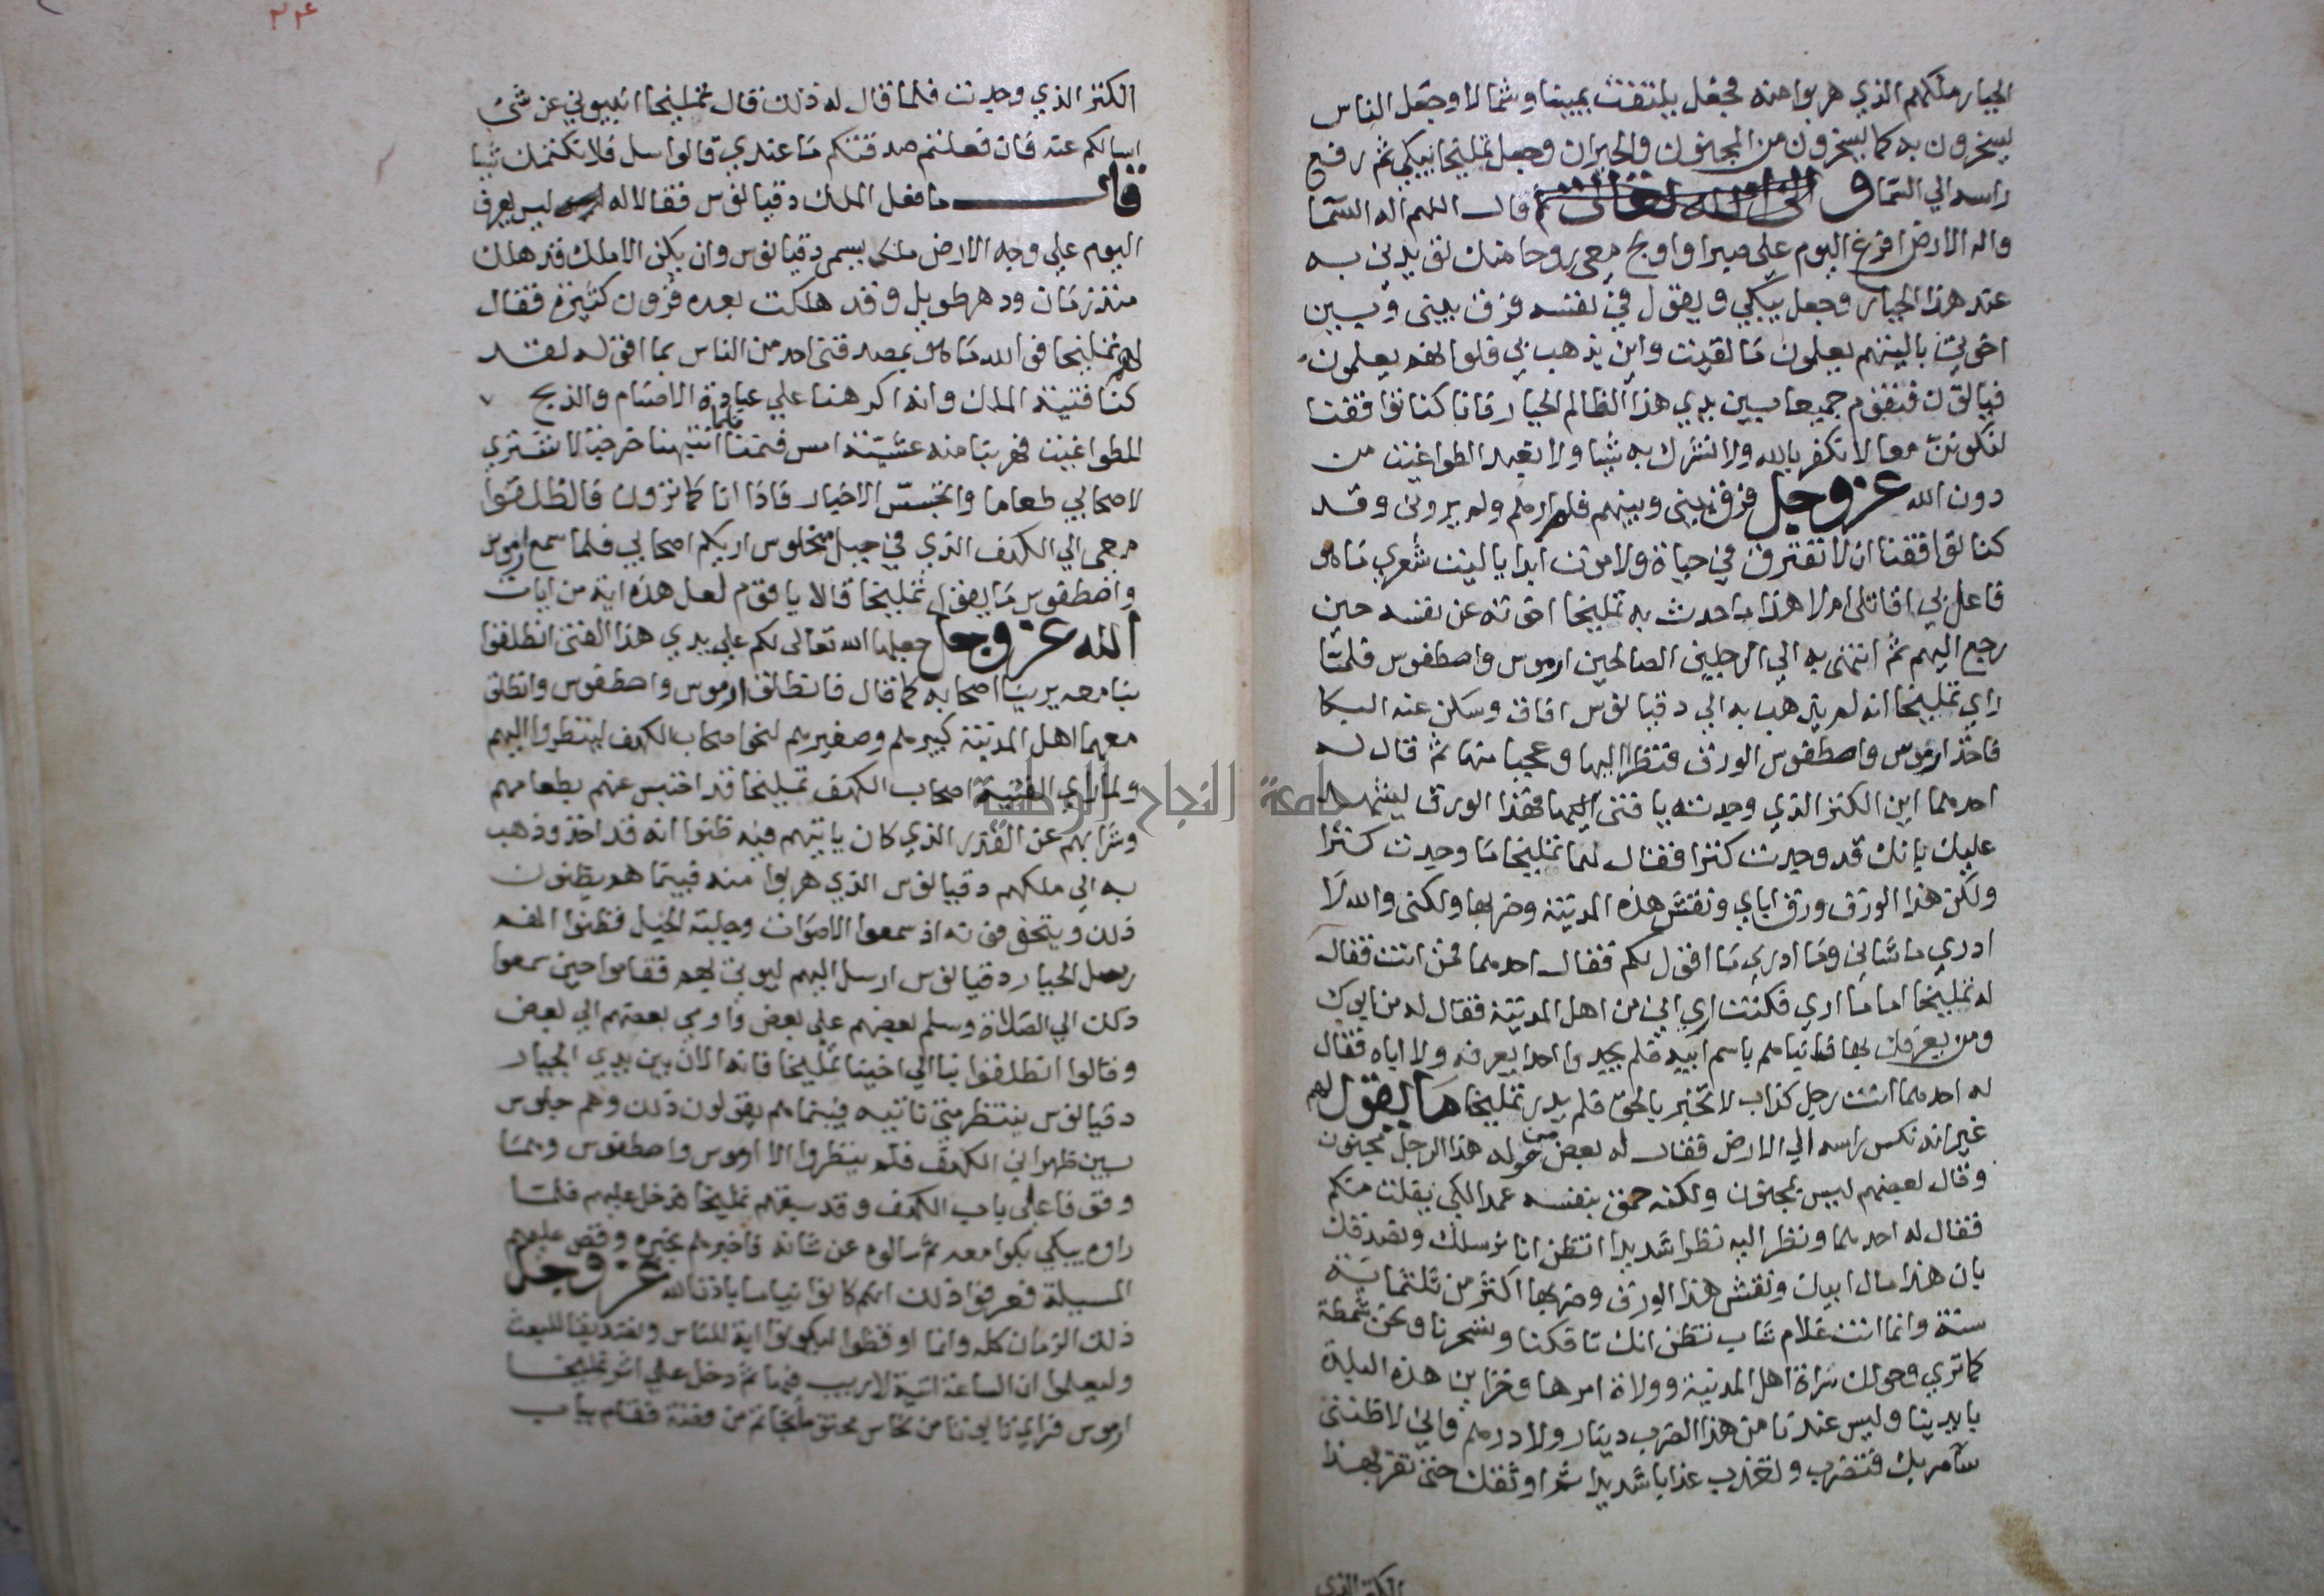 الجبار ملكهم الذي هربوا منه فجعل يلتفت يمينا وشمالا وجعل الناس
يسخرون به كما يسخرون من المجنون والحيران وجعل تمليخا يبكي ثم رفع
راسه الي السما و الى الله تعالى ثم قال اللهم اله السما
واله الارض افرغ اليوم علي صبرا واولج معي روحا منك تؤيدني به
عند هذا الجبار وجعل يبكي ويقول في نفسه فرق بيني وبين
اخوتي ياليتهم يعلمون ما لقيت واين يذهب بي فلو انهم يعلمون
فياتون فنقوم جميعا بين يدي هذا الظالم الجبار فانا كنا توافقنا
لنكونن معا لا نكفر بالله ولا نشرك به شيا ولا نعبد الطواغيت من
دون الله عز وجل فرق بيني وبينهم فلم ارهم ولم يروني وقد
كنا توافقنا ان لا نفترق في حياة ولا موت ابدا ياليت شعري ما هو
فاعل بي اقاتلي ام لا هذا ما حدث به تمليخا اخوته عن نفسه حين
رجع اليهم ثم انتهى به الي الرجلين الصالحين ارموس واصطفوس فلما
راي تمليخا انه لم يذهب به الي دقيانوس افاق وسكن عنه البكا
فاخذ ارموس واصطفوس الورق فنظرا اليها وعجبا منها ثم قال له
احدهما اين الكنز الذي وجدته يا فتى فهذا الورق يشهد
عليك بانك قد وجدت كنزا فقال لهما تمليخا ما وجدت كنزا
ولكن هذا الورق ورق اباي ونقش هذه المدينة وضربها ولكني والله لا
ادري ما شاني وما ادري ما اقول لكم فقال احدهما فمن انت فقال
له تمليخا اما ما اري فكنت اري اني من اهل المدينة فقال له من ابوك
ومن يعرفك بها فانباهم باسم ابيه فلم يجد واحدا يعرفه ولا اباه فقال
له احدهما انت رجل كذاب لا تخبر بالحق فلم يدر تمليخا ما يقول لهم
غير انه نكس راسه الي الارض فقال له بعض من حوله هذا الرجل مجنون
وقال بعضهم ليس بمجنون ولكنه حمق بنفسه عمدا لكي يفلت منكم
فقال له احدهما ونظر اليه نظرا شديدا اتظن انا نرسلك ونصدقك
بان هذا مال ابيك ونقش هذا الورق وضربها اكثر من ثلثماية
سنة وانما انت غلام شاب تظن انك تافكنا وتسخرنا ونحن شمطة
كما تري وحولك سراة اهل المدينة وولاة امرها وخزاين هذه البلدة
بايدينا وليس عندنا من هذا الضرب دينار ولا درهم واني لاظنني
سامر بك فتضرب وتعذب عذابا شديدا ثم اوثقك حتى تقر بهذا
الكنز الذي
٢٤
الكنز الذي وجدت فلما قال له ذلك قال تمليخا انبيوني عن شي
اسالكم عنه فان فعلتم صدقتكم ما عندي قالوا سل فلا نكتمك شيا
قال ما فعل الملك دقيانوس فقالا له ليس يعرف
اليوم علي وجه الارض ملك يسمى دقيانوس وان يكن الا ملك قد هلك
منذ زمان ودهر طويل وقد هلكت بعده قرون كثيرة فقال
لهم تمليخا فوالله ما هو بمصدقني احد من الناس بما اقوله لقد
كنا فتية الملك وانه اكرهنا علي عبادة الاصنام والذبح
للطواغيت فهربنا منه عشية امس فنمنا فلما انتبهنا خرجت لاشتري
لاصحابي طعاما واتجسس الاخبار فاذا انا كما ترون فانطلقوا
معي الي الكهف الذي في جبل منجلوس اريكم اصحابي فلما سمع ارموس
واصطفوس ما يقول تمليخا قالا يا قوم لعل هذه اية من ايات
الله عز وجل جعلها الله تعالى لكم علي يدي هذا الفتى انطلقوا
بنا معه يرينا اصحابه كما قال فانطلق ارموس واصطفوس وانطلق
معهما اهل المدينة كبيرهم وصغيرهم نحو اصحاب الكهف لينظروا اليهم
ولما راي الفتية اصحاب الكهف تمليخا قد احتبس عنهم بطعامهم
وشرابهم عن القدر الذي كان ياتيهم فيه ظنوا انه قد اخذ وذهب
به الي ملكهم دقيانوس الذي هربوا منه فبينما هم يظنون
ذلك ويتخوفونه اذ سمعوا الاصوات وجلبة الخيل فظنوا انهم
رسل الجبار دقيانوس ارسل اليهم ليوتى بهم فقاموا حين سمعوا
ذلك الي الصلاة وسلم بعضهم علي بعض واوصي بعضهم الي بعض
وقالوا انطلقوا بنا الي اخينا تمليخا فانه الان بين يدي الجبار
دقيانوس ينتظر متى ناتيه فبينما هم يقولون ذلك وهم جلوس
بين ظهراني الكهف فلم ينظروا الا ارموس واصطفوس وهما
وقوفا على باب الكهف وقد سبقهم تمليخا فدخل عليهم فلما
راوه يبكي بكوا معه ثم سالوه عن شانه فاخبرهم بخبره وقص عليهم
المسيلة فعرفوا ذلك انهم كانوا نياما باذن الله عز وجل
ذلك الزمان كله وانما اوقظوا ليكونوا اية للناس وتصديقا للبعث
وليعلموا ان الساعة اتية لا ريب فيها ثم دخل علي اثر تمليخا
ارموس فراي تابوتا من نحاس مختوما بخاتم من فضة فقام بباب
جامعة النجاح الوطنية